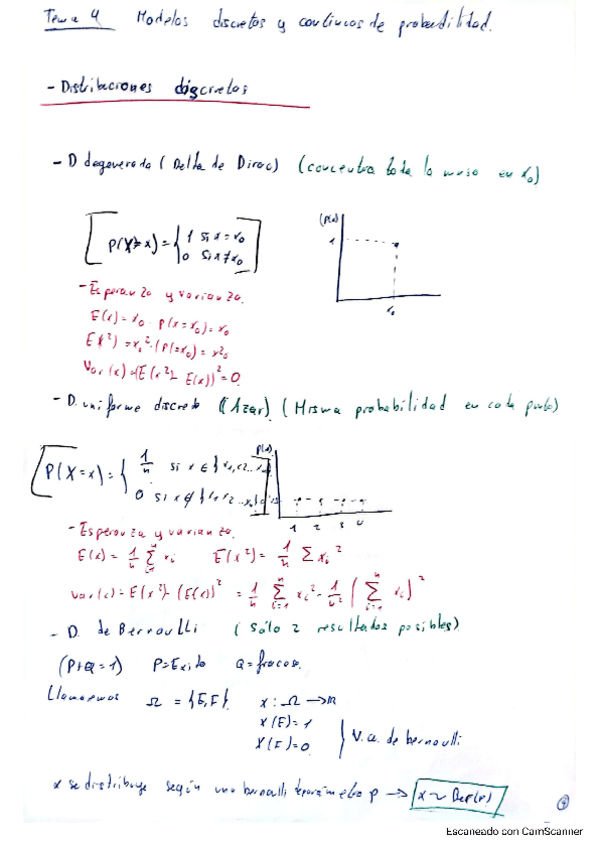 Tema 4 Modelos discretos y continuos de probabilidad.
- Distribuciones discretas
- D degenerada (Delta de Dirac) (concentra toda la masa en x₀)
P(X=x) = { 1 si x = x₀
0 si x ≠ x₀
P(x)
1
x₀
- Esperanza y varianza.
E(x) = x₀ · P(x=x₀) = x₀
E(x²) = x₀² · (P(=x₀) = x²₀
Var(x) = (E(x²) - E(x))² = 0.
- D. uniforme discreta (Azar) (Misma probabilidad en cada punto)
P(X=x) = { 1/n si x ∈ {x₁, x₂...
0 si x ∉ {x₁, x₂...
P(x)
1 2 3 4
- Esperanza y varianza.
E(x) = 1/n Σ xᵢ E(x²) = 1/n Σ xᵢ²
Var(x) = E(x²) - (E(x))² = 1/n Σ xᵢ² - 1/n² (Σ xᵢ)²
- D. de Bernoulli (Sólo 2 resultados posibles)
(P+Q=1) P=Exito Q=fracaso.
Llamamos Ω = {E,F}. x: Ω → R
X(E)=1
X(F)=0
V.a. de bernoulli
x se distribuye según una bernoulli de parámetro p → x ~ Ber(p)
Escaneado con CamScanner